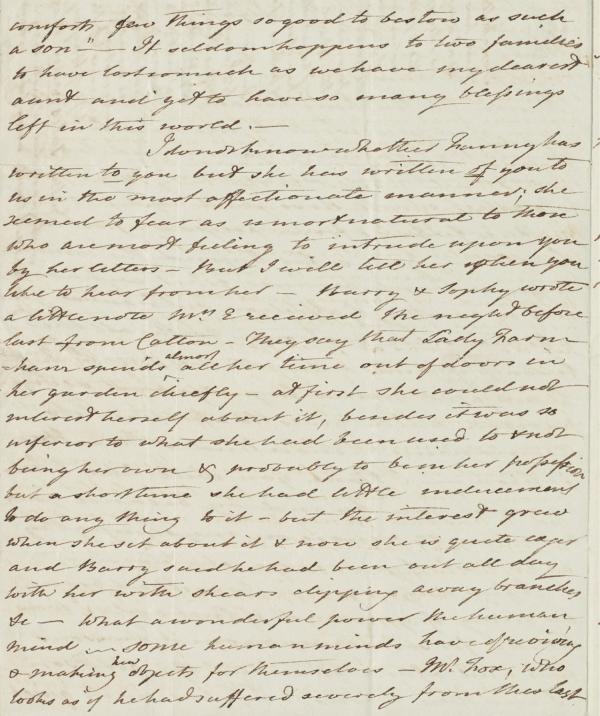 comfort, few things so good to bestow as such
a son" — It seldom happens to two families
to have lost so much as we have my dearest
aunt and yet to have so many blessings
left in this world. —
I do not know whether Fanny has
written to you but she has written of you to
us in the most affectionate manner; she
seemed to fear as is most natural to those
who are most feeling to intrude upon you
by her letters — But I will tell her when you
like to hear from her — Barry & Sophy wrote
a little note Mrs E received the night before
last from Catton — They say that Lady Farn
=ham spends almost all her time out of doors in
her garden chiefly — at first she could not
interest herself about it, besides it was so
inferior to what she had been used to & not
being her own & probably to be in her possession
but a short time she had little inducement
to do any thing to it — but the interest grew
when she set about it & now she is quite eager
and Barry said he had been out all day
with her with shears clipping away branches
&c — what a wonderful power the human
mind — some human minds have of reviving
& making new objects for themselves — Mr. Fox, who
looks as if he had suffered severely from this last